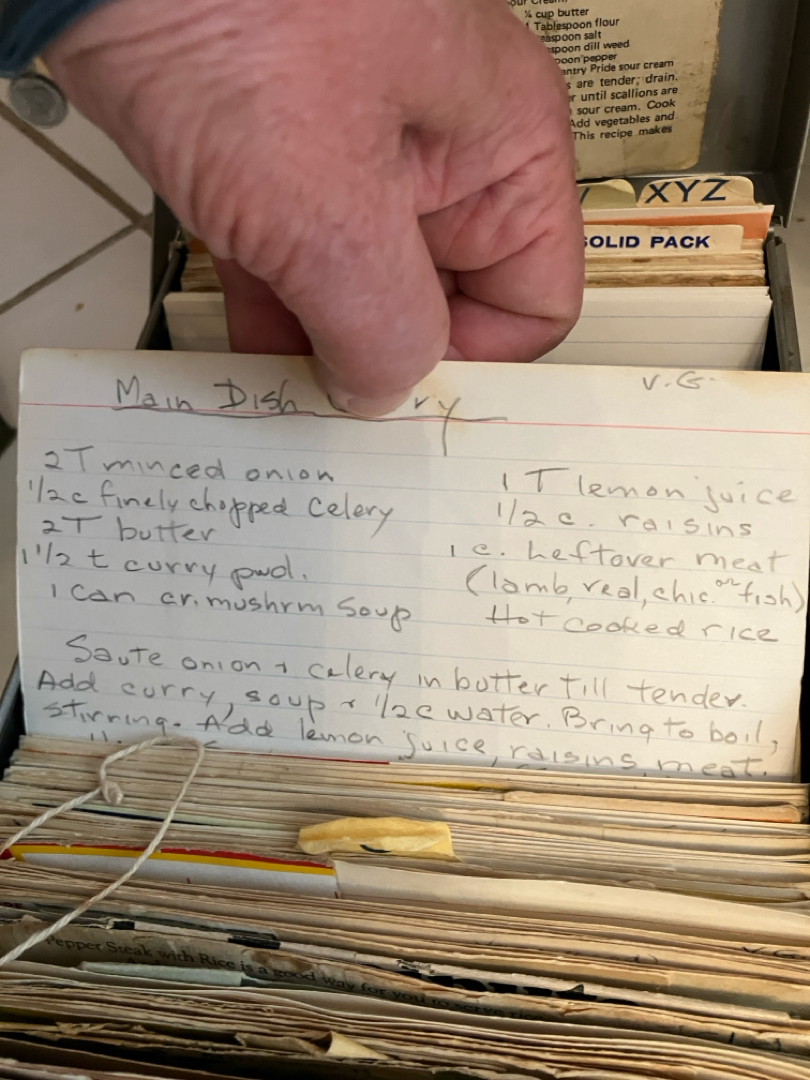 ¼ cup butter
1 Tablespoon flour
salt
dill weed
pepper
Pride sour cream
are tender; drain.
until scallions are
sour cream. Cook
Add vegetables and
This recipe makes
XYZ
SOLID PACK
Main Dish
V.G.
2T minced onion
1/2 c finely chopped Celery
2T butter
1 1/2 t curry pwd.
1 Can cr. mushrm Soup
1 T lemon juice
1/2 c. raisins
1 c. Leftover meat
(lamb, veal, chic. or fish)
Hot cooked rice
Saute onion + celery in butter till tender.
Add curry, soup + 1/2 c water. Bring to boil,
stirring. Add lemon juice, raisins, meat.
Pepper Steak with Rice is a good way for you to serve